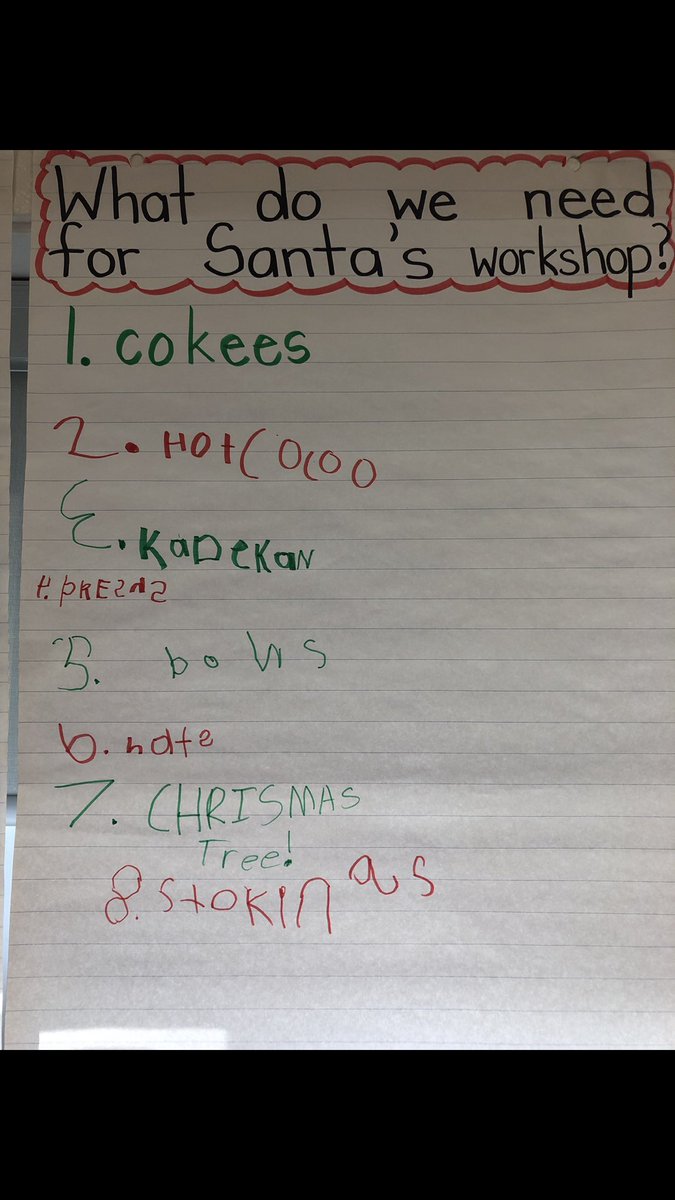 What do we need
for Santa's workshop?
1. cokees
2. HOt COCOO
3. KaDeKaN
4. pREsns
5. bows
6. note
7. CHRISMAS
Tree!
8. StoKINgs